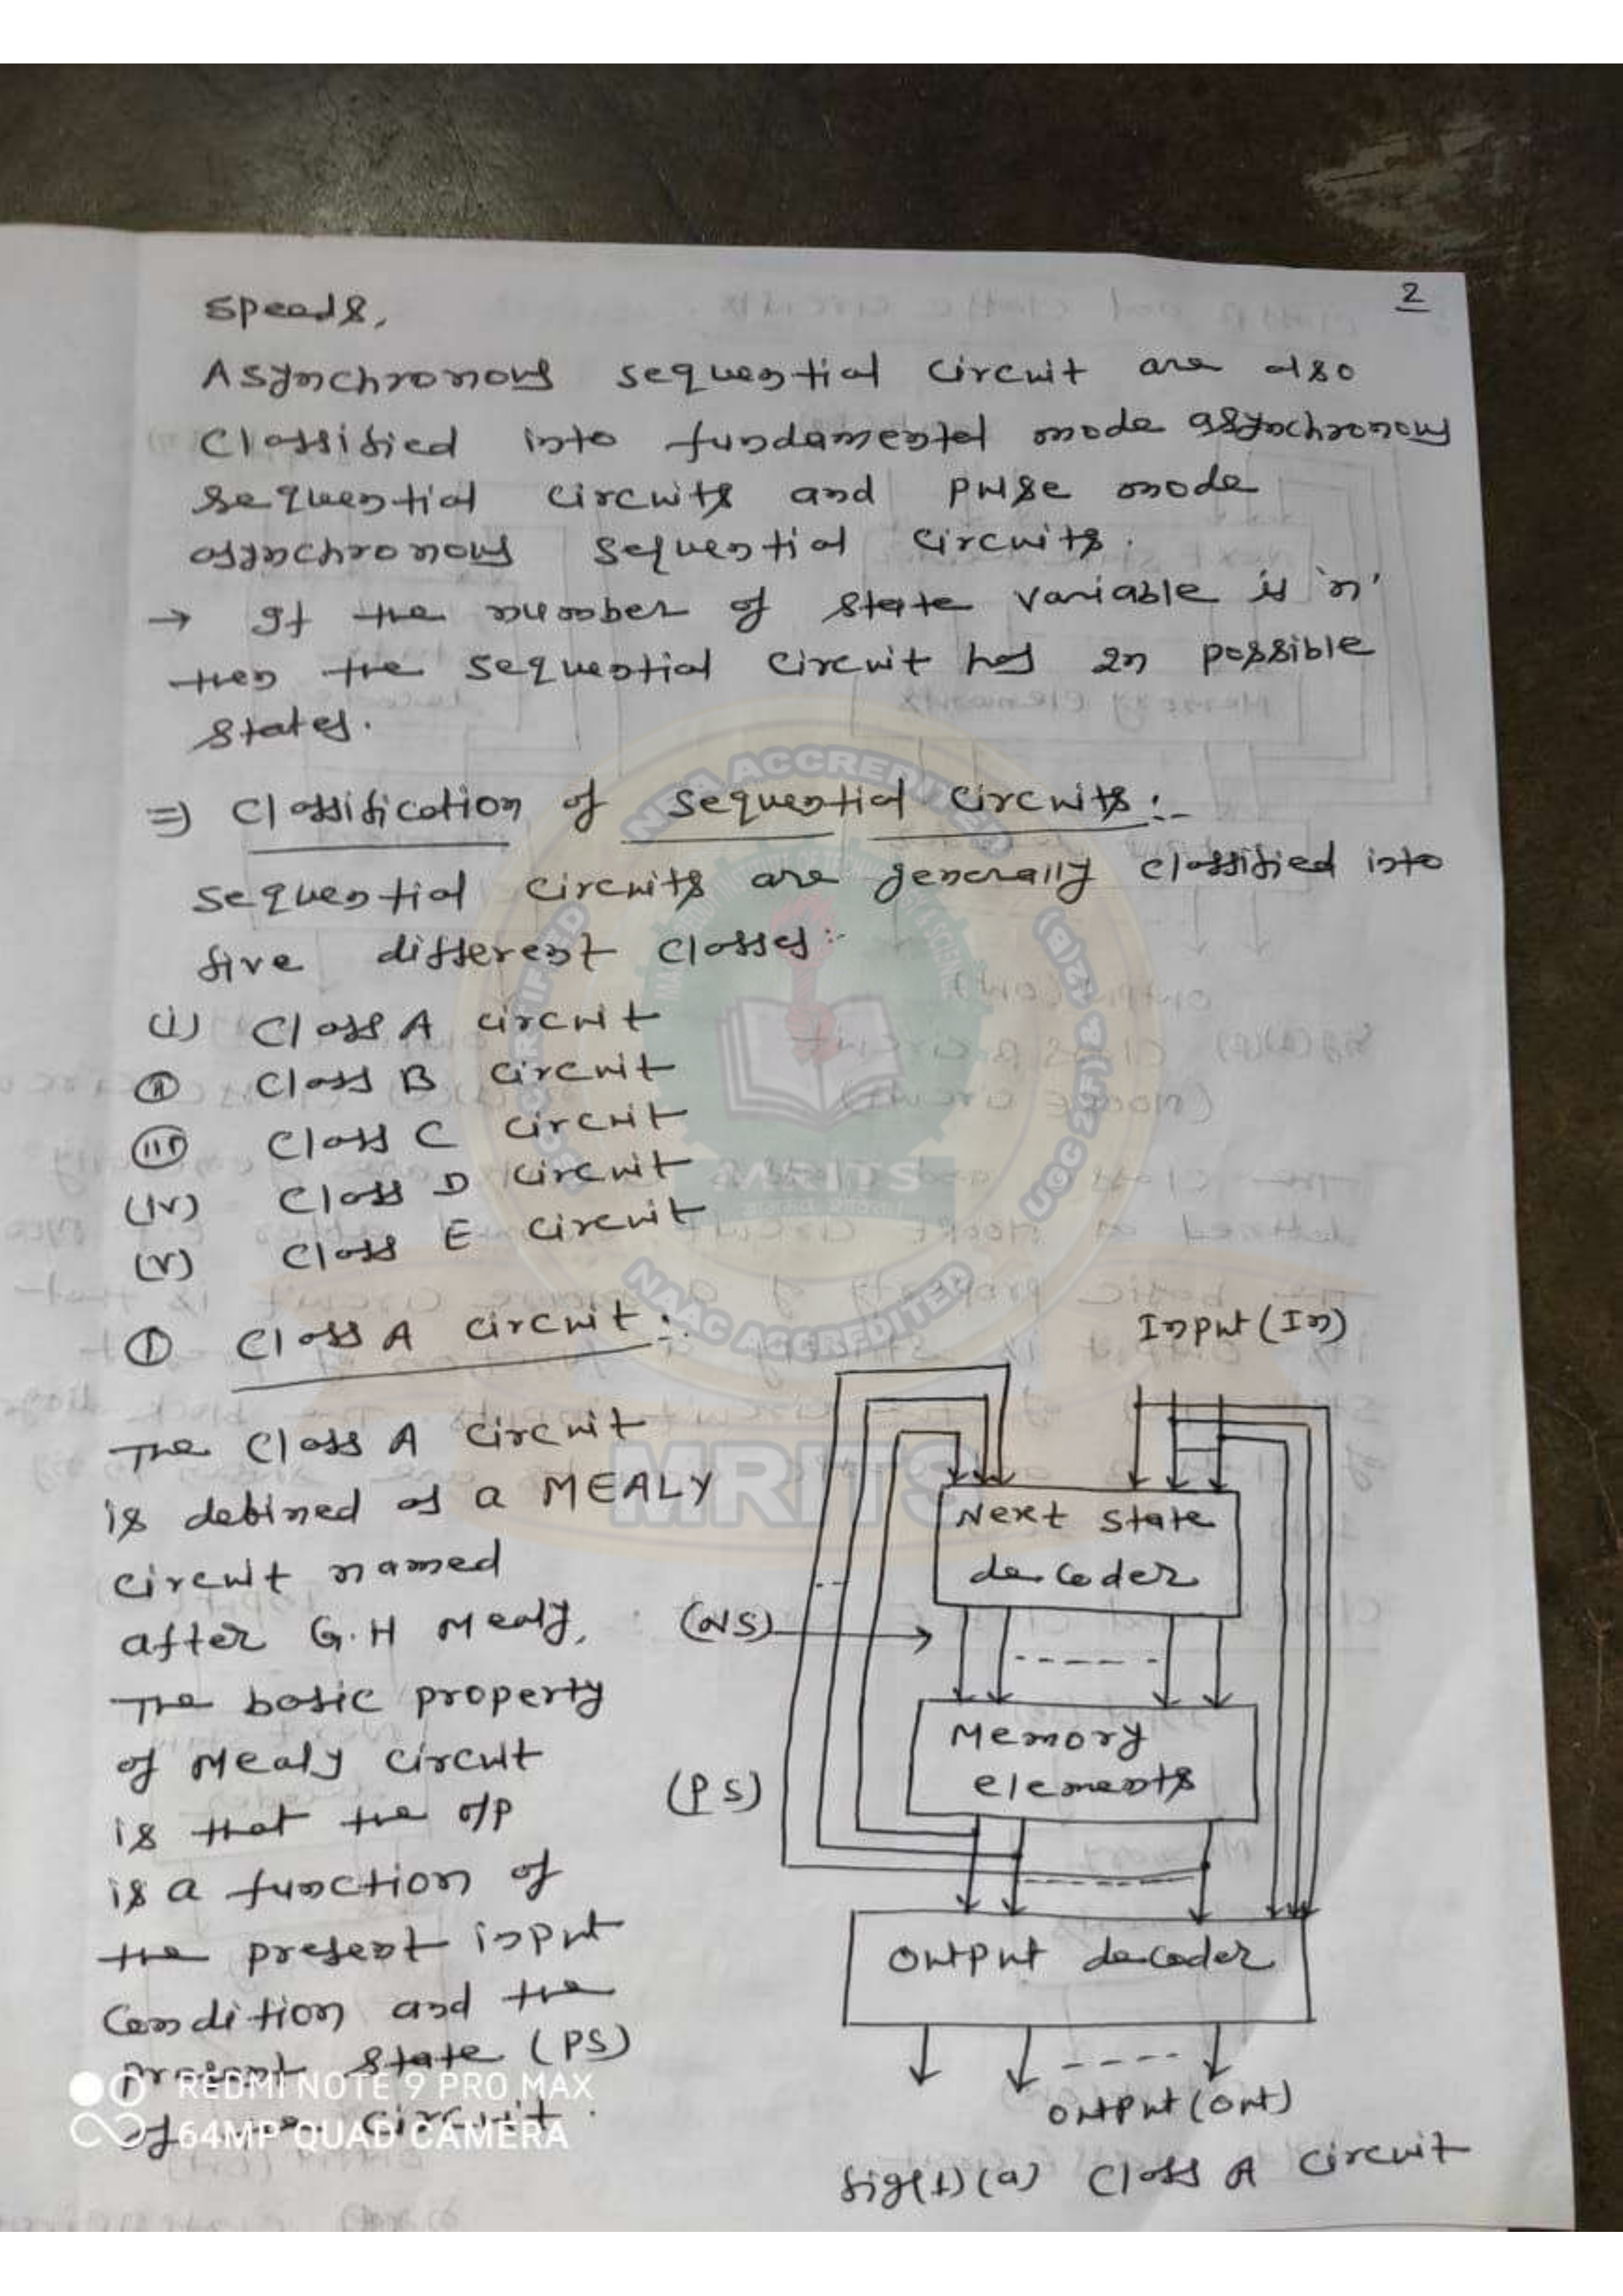 2
speeds,
Asynchronous sequential circuit are also
classified into fundamental mode asynchronous
sequential circuits and pulse mode
asynchronous sequential circuits.
→ If the number of state variable is 'n'
then the sequential circuit has 2n possible
states.
⇒ Classification of sequential circuits:-
sequential circuits are generally classified into
five different classes:-
(i) Class A circuit
(ii) Class B circuit
(iii) Class C circuit
(iv) Class D circuit
(v) Class E circuit
(I) Class A circuit:-
The Class A circuit
is defined as a MEALY
circuit named
after G.H Mealy,
The basic property
of Mealy circuit
is that the o/p
is a function of
the present input
Condition and the
Present state (PS)
of circuit.
Input (In)
Next state
decoder
(NS)
Memory
elements
(PS)
Output decoder
Output (Out)
fig(1)(a) Class A circuit
NBA ACCREDITED
UGC 2(f) & 12(B)
NAAC ACCREDITED
CERTIFIED
MRITS
MRITS
REDMI NOTE 9 PRO MAX
64MP QUAD CAMERA